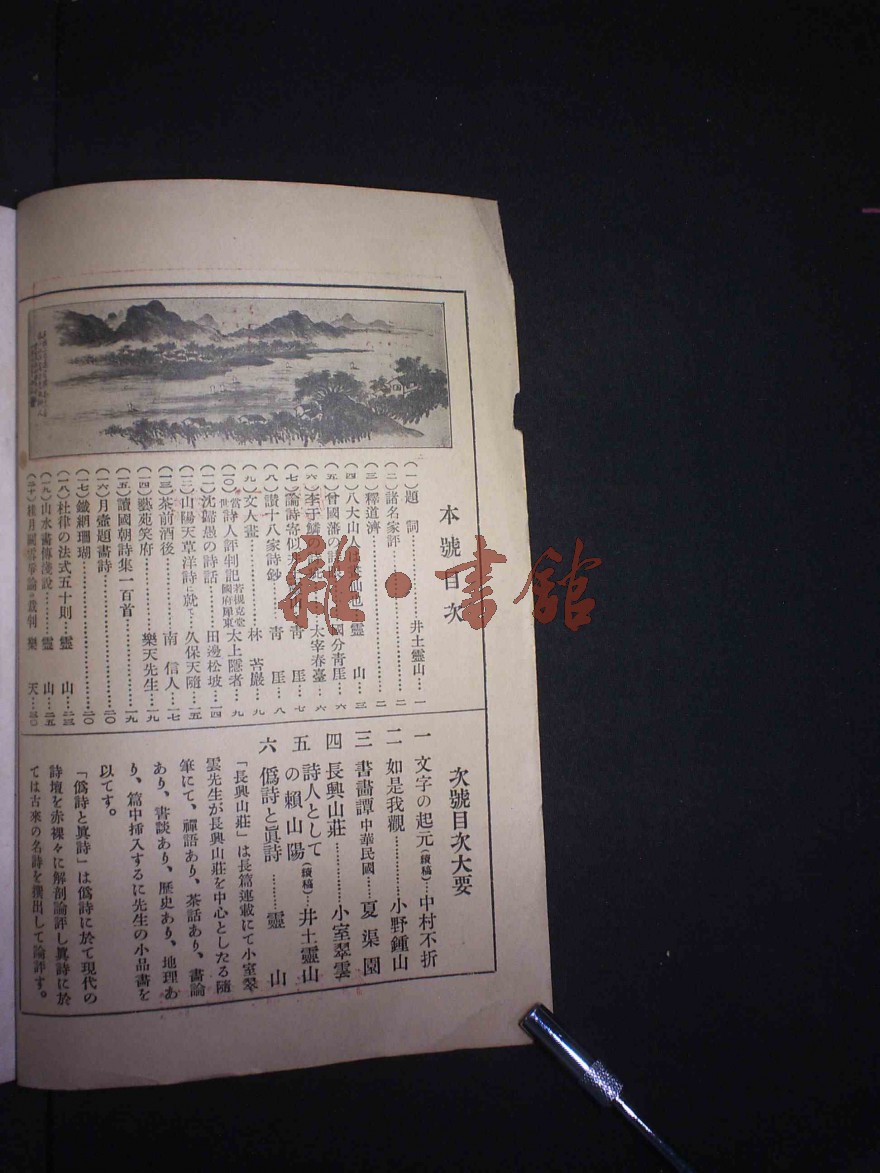 本號目次
(一)題詞………井土靈山…一
(二)諸名家評………二
(三)釋道濟………二
(四)八大山人は 仙也 靈山…三
(五)曾國藩の詩 國分靑厓…六
(六)李于鱗の 太宰春臺…六
(七)論詩寄似 靑厓…七
(八)讃十八家詩鈔… 靑厓…八
(九)文人畫………林苔巖…九
(一〇)當世詩人評判記 若槻克堂 國府犀東 太上隱者…九
(一一)沈歸愚の詩話………田邊松坡…一四
(一二)山陽天草洋詩に就て…久保天隨…一五
(一三)茶前酒後………南信人…一七
(一四)藝苑笑府………樂天先生…一九
(一五)讀國朝詩集一百首………一九
(一六)月壺題畫詩………二〇
(一七)鐵網珊瑚………二〇
(一八)杜律の法式五十則…靈山…二三
(一九)山水畫傳淺說…靈山…二五
(二十) 裁判 樂天…三〇
次號目次大要
一 文字の起元(續稿)…中村不折
二 如是我觀………小野鍾山
三 書畵譚 中華民國……夏渠園
四 長興山莊………小室翠雲
五 詩人としての賴山陽(續稿)…井土靈山
六 僞詩と眞詩………靈山
「長興山莊」は長篇連載にて小室翠
雲先生が長興山莊を中心としたる隨
筆にて、禪語あり、茶話あり、書論
あり、書談あり、歷史あり、地理あ
り、篇中挿入するに先生の小品畫を
以てす。
「僞詩と眞詩」は僞詩に於て現代の
詩壇を赤裸々に解剖論評し眞詩に於
ては古來の名詩を撰出して論評す。
雜·書館